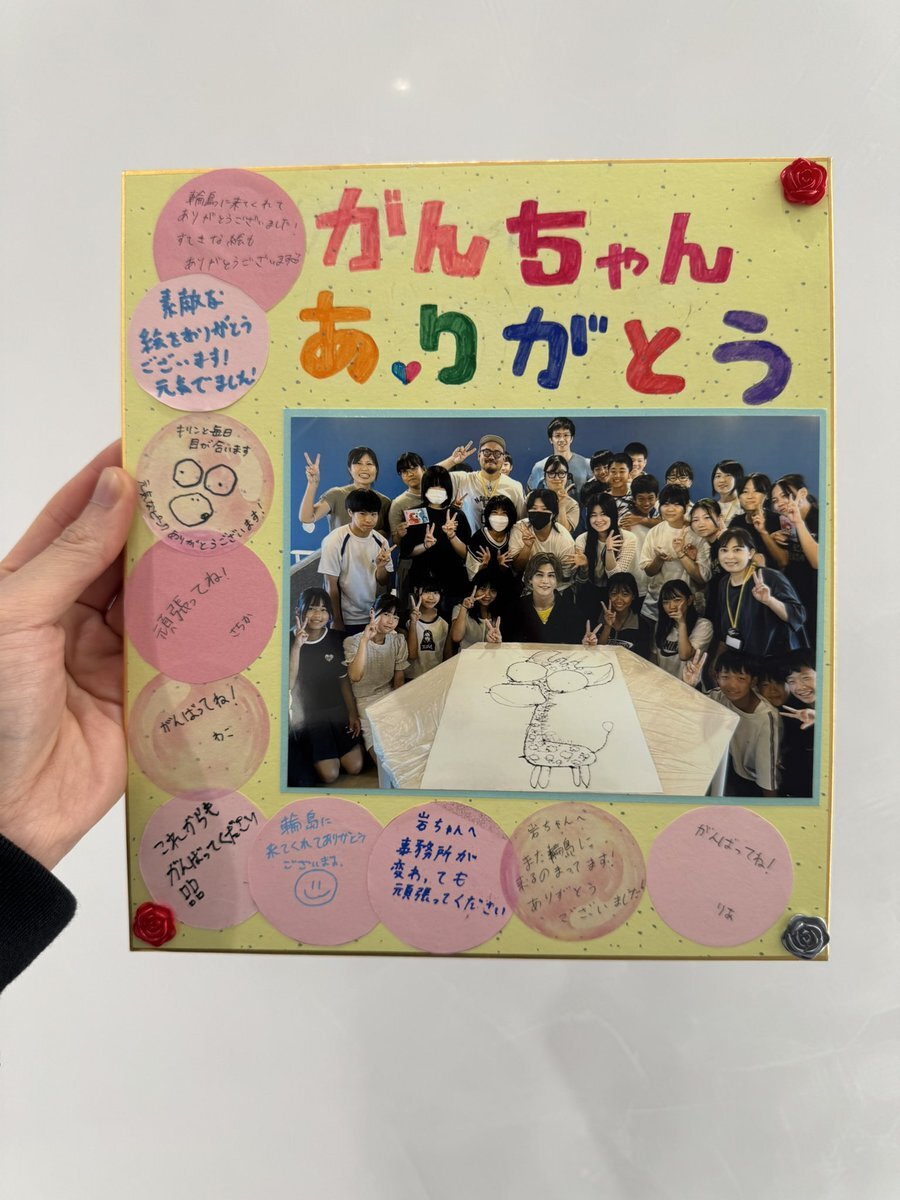 がんちゃん
ありがとう
輪島に来てくれて
ありがとうございました!
すてきな絵も
ありがとうございます
素敵な
絵をありがとう
ございます!
元気でました!
キリンと毎日
目が合います
ありがとうございます!
頑張ってね!
さちか
がんばってね!
わこ
これからも
がんばってください
輪島に
来てくれてありがとう
ございます。
岩ちゃんへ
事務所が
変わっても
頑張ってください
岩ちゃんへ
また輪島に
来るのまってます!
ありがとう
ございました!
がんばってね!
りお